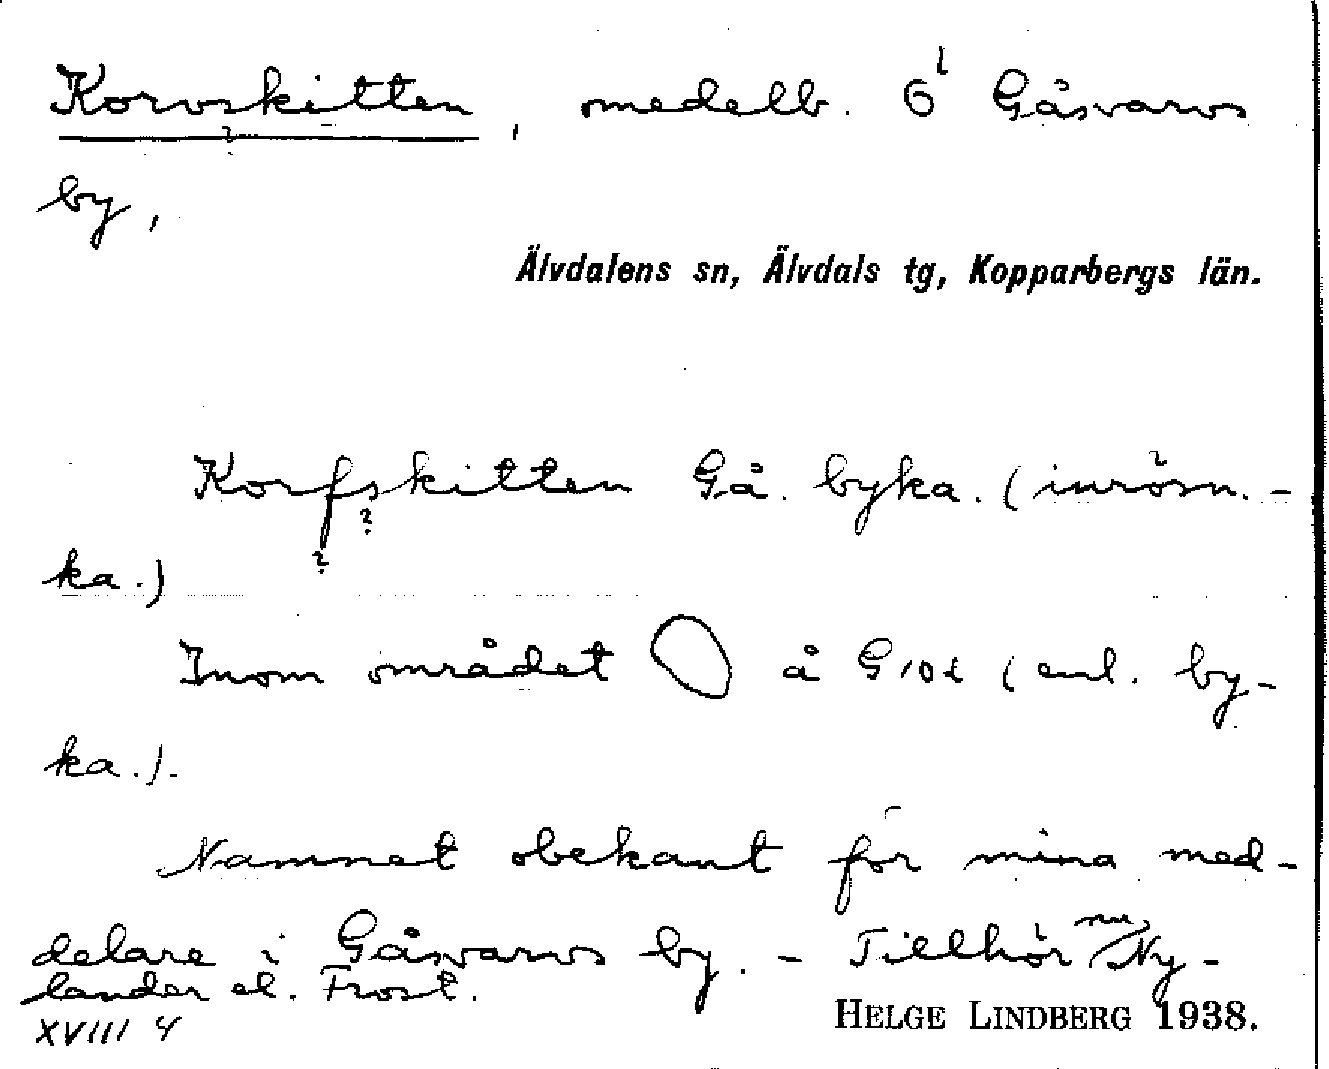 Korvskitten, medelb. 6 Gåsvarvs
by,
Älvdalens sn, Älvdals tg, Kopparbergs län.
Korfskitten Gå. byka. (inrösn.-
ka.)
Inom området å G10t (enl. by-
ka.).
Namnet obekant för mina med-
delare i Gåsvarvs by. - Tillhör nu Ny-
lander el. Frost.
XVIII 4
HELGE LINDBERG 1938.